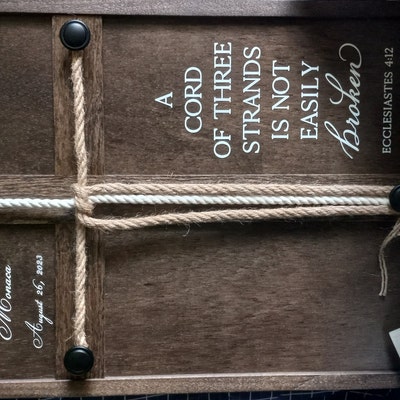 A
CORD
OF THREE
STRANDS
IS NOT
EASILY
broken
ECCLESIASTES 4:12
Monaca
August 26, 2023